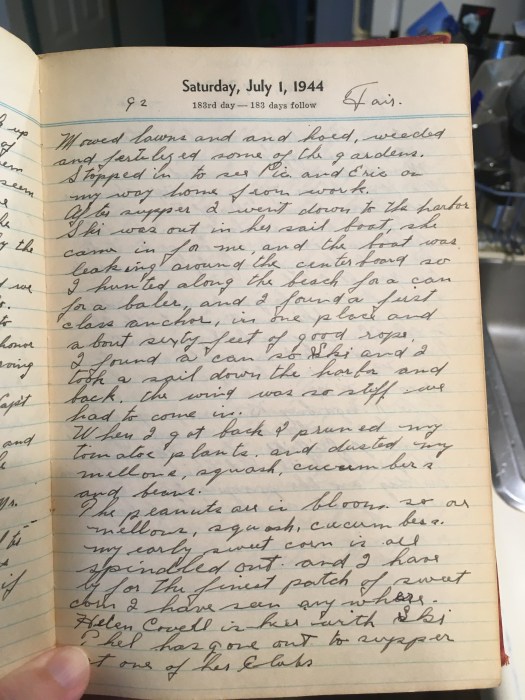 Saturday, July 1, 1944
92 183rd day — 183 days follow Fair.
Mowed lawns and and hoed, weeded
and fertilyzed some of the gardens.
Stopped in to see Pia and Eric on
my way home from work.
After supper I went down to the harbor
Ski was out in her sail boat, she
came in for me, and the boat was
leaking around the centerboard so
I hunted along the beach for a can
for a baler, and I found a first
class anchor, in one place and
about sixty feet of good rope.
I found a can so Ski and I
took a sail down the harbor and
back. the wind was so stiff we
had to come in.
When I got back I pruned my
tomatoe plants. and dusted my
mellons, squash, cucumbers
and beans.
The peanuts are in bloom. so are
mellons, squash, cucumbers.
my early sweet corn is all
spindled out. and I have
by far the finest patch of sweet
corn I have seen any where.
Helen Covell is here with Ski
has gone out to supper
at one of her Clubs
up
of
seem
he
y the
d we
to
honor
roving
Capt
and
Mr.
if